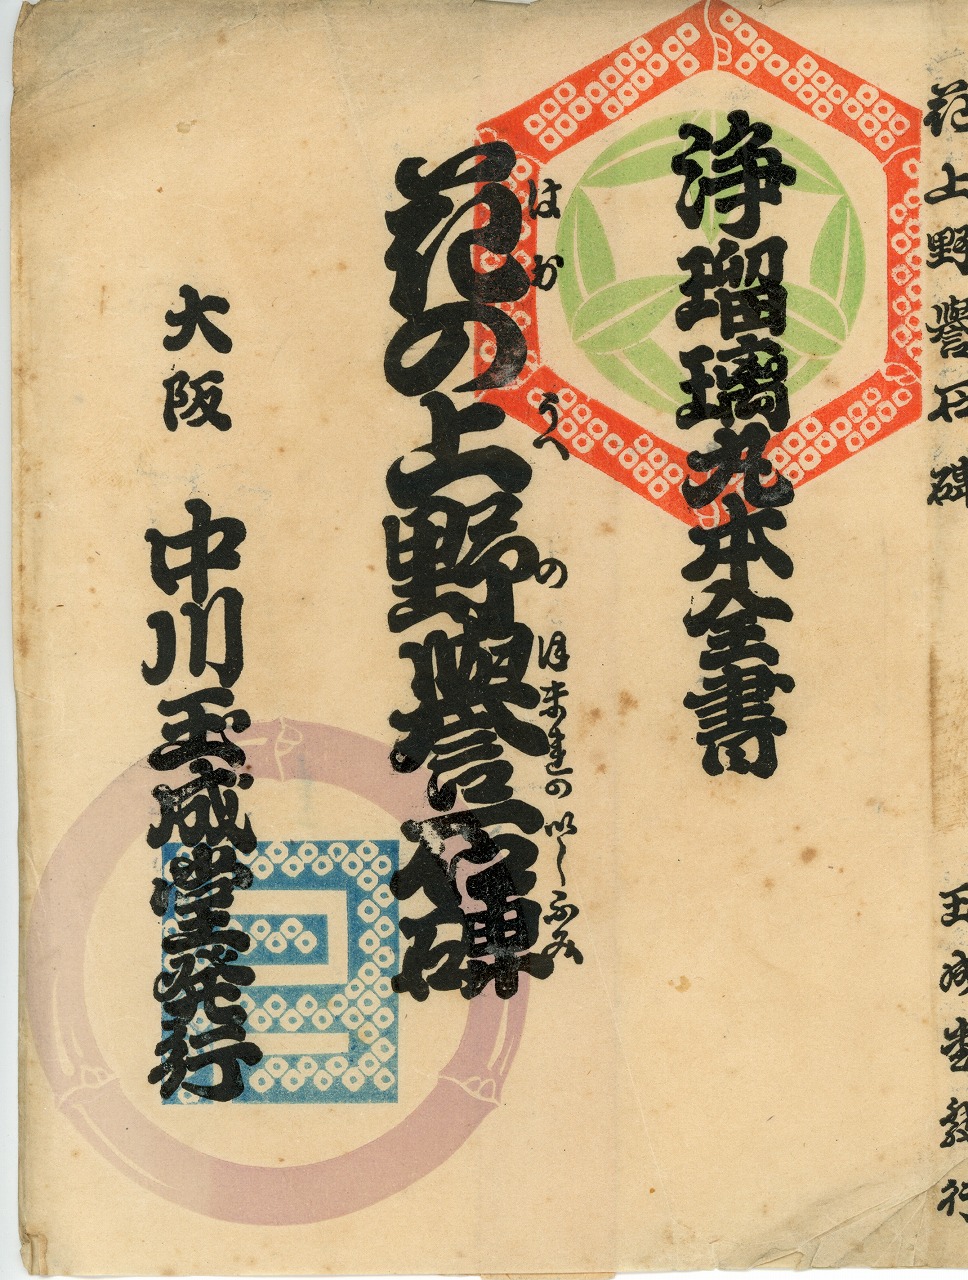 花上野誉石碑
玉成堂発行
浄瑠璃丸本全書
はなのうへのほまれのいしぶみ
花の上野誉石碑
大阪 中川玉成堂発行